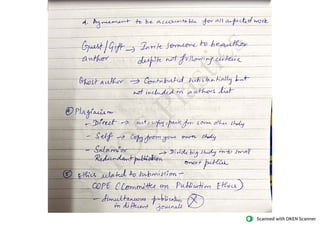 d. Agreement to be accountable for all aspects of work
Guest/Gift → Invite someone to be author
author despite not following criteria
Ghost author → Contributed substantially but
not included in authors list
④ Plagiarism
- Direct → cut-copy-paste from some other study
- Self → Copy from your own study
- Salami or → Divide big study into small
Redundant publication & most publish
⑤ Ethics related to submission -
COPE (Committee on Publication Ethics)
- Simultaneous publication
in different journals
Scanned with OKEN Scanner